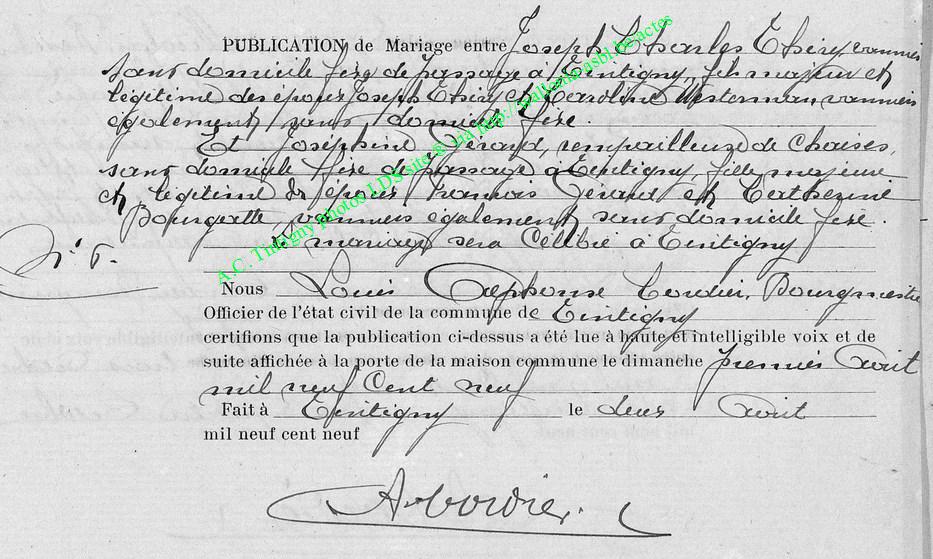 PUBLICATION de Mariage entre Joseph Charles Théry vannier
sans domicile fixe de passage à Tintigny, fils majeur et
légitime des époux Joseph Théry et Caroline Westerman vanniers
également sans domicile fixe.
Et Joséphine Gérard, rempailleuse de chaises,
sans domicile fixe de passage à Tintigny, fille majeure
et légitime des époux François Gérard et Catherine
Bourgeatte vanniers également sans domicile fixe.
Le mariage sera célébré à Tintigny
N° 5.
Nous Louis Alphonse Cordier, Bourgmestre
Officier de l'état civil de la commune de Tintigny
certifions que la publication ci-dessus a été lue à haute et intelligible voix et de
suite affichée à la porte de la maison commune le dimanche premier Août
mil neuf cent neuf
Fait à Tintigny le deux Août
mil neuf cent neuf
A. Cordier.
A.C. Tintigny photos LDS site & via http://wallonia-asbl.be/actes